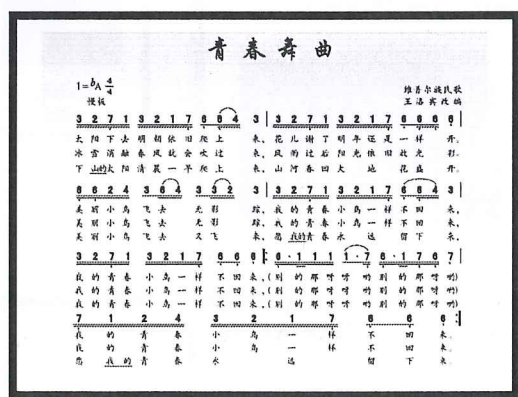 青春舞曲
1=♭A 4/4
维吾尔族民歌
慢板
王洛宾改编
3 2 1 7 3 2 1 7 6 6 4 3 | 3 2 1 7 3 2 1 7 6 6 6 6 |
太阳下去明朝依旧爬上来，花儿谢了明年还是一样开。
冰雪消融春风就会吹过来，风雨过后阳光依旧放光彩。
下山的太阳清晨一早爬上来，山河春回大地花盛开。
6 6 2 4 3 6 4 3 3 2 3 | 3 2 1 7 3 2 1 7 6 6 6 6
美丽小鸟飞去无影踪，我的青春小鸟一样不回来，
美丽小鸟飞去无影踪，我的青春小鸟一样不回来，
美丽小鸟飞去又飞来，愿我的青春永远留下来，
3 2 1 7 3 2 1 7 6 6 6 :| 6 · 1 1 1 1 · 7 6 1 7 6 7 |
我的青春小鸟一样不回来，(别的那呀呀哟别的那呀哟)
我的青春小鸟一样不回来，(别的那呀呀哟别的那呀哟)
我的青春小鸟一样不回来，(别的那呀呀哟别的那呀哟)
7 1 2 4 3 2 1 7 6 6 6 :|
我的青春小鸟一样不回来。
我的青春小鸟一样不回来。
愿我的青春永远留下来。